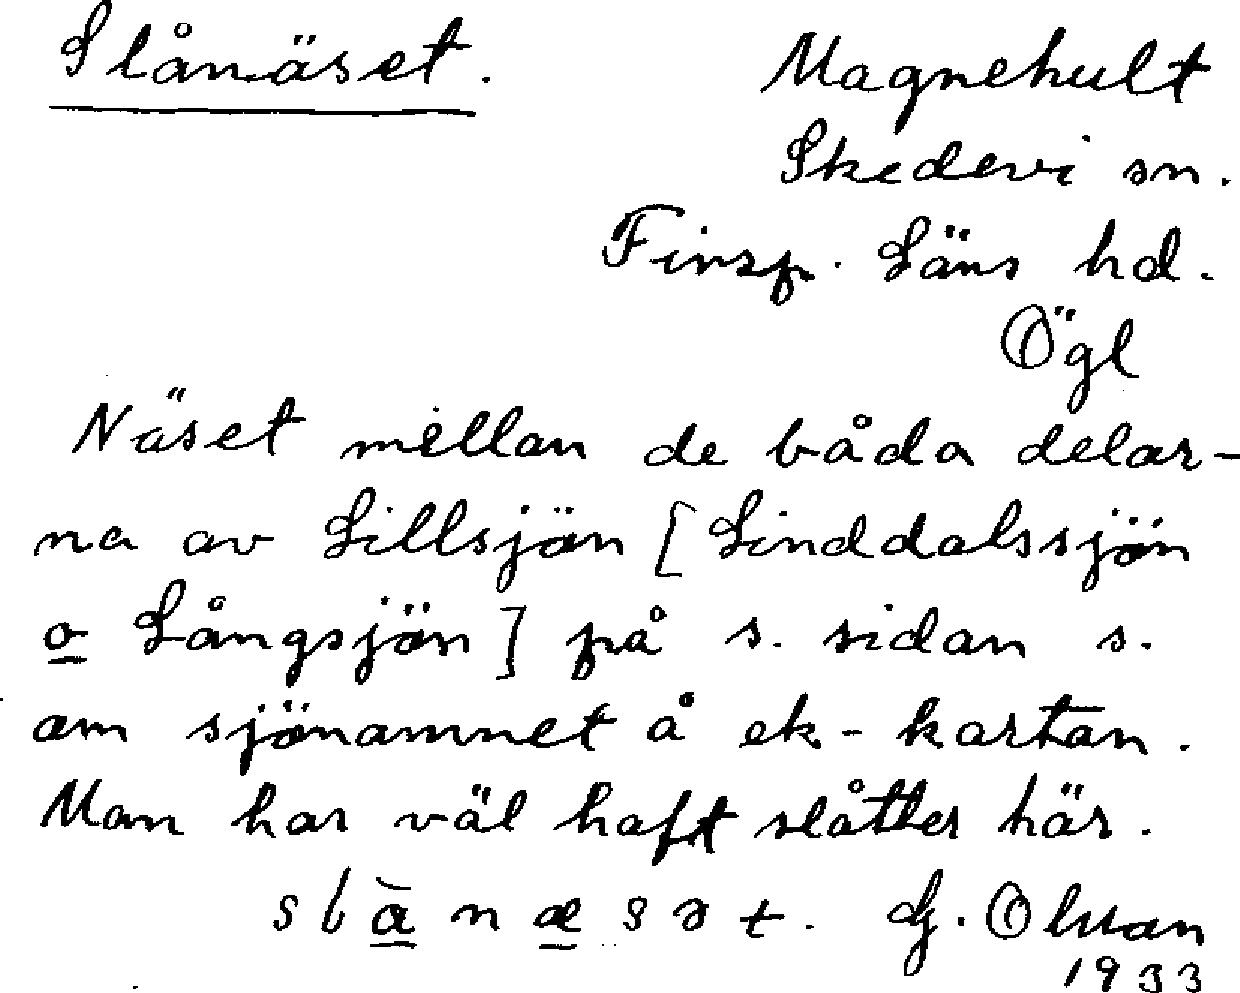 Slånäset.
Magnehult
Skedevi sn.
Finsp. Läns hd.
Ögl
Näset mellan de båda delar-
na av Lillsjön [Linddalssjön
o Långsjön] på s. sidan s.
om sjönamnet å ek-kartan.
Man har väl haft slåtter här.
G. Olman
1933